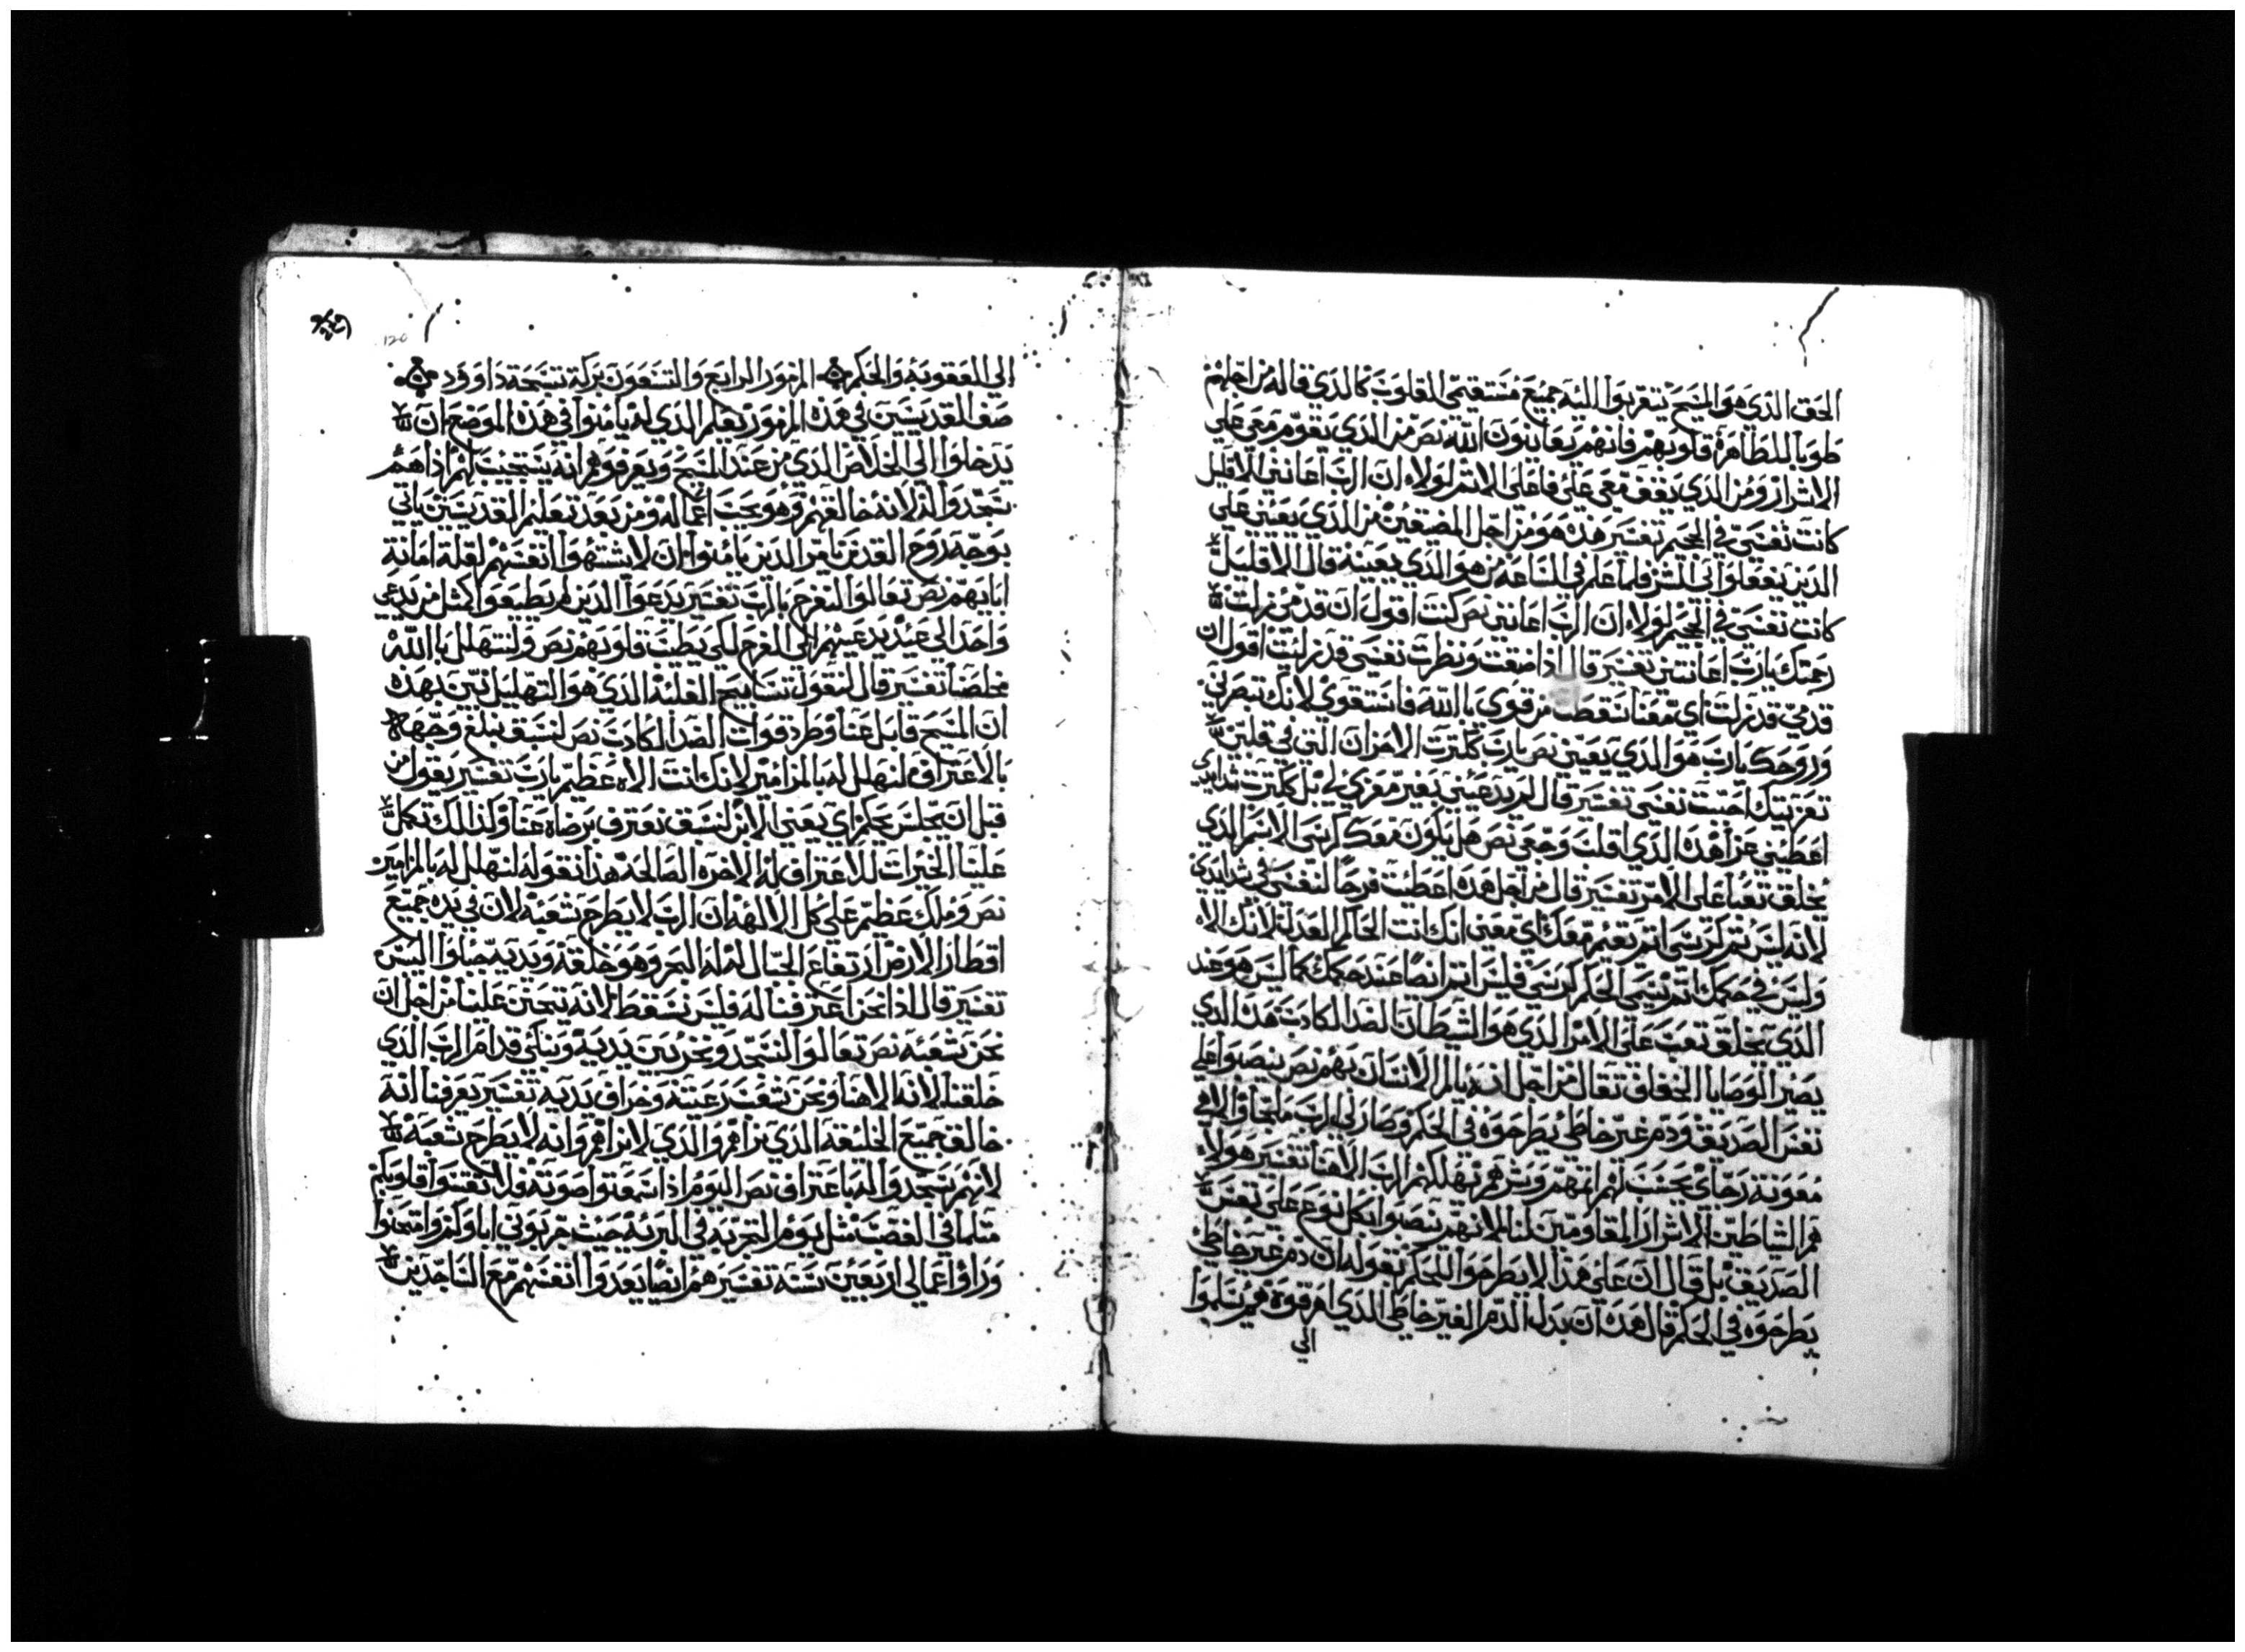 الحق الذي هو المسيح يتقربوا اليه جميع مستقيمي القلوب كالذي قاله من اجلهم
طوبا للطاهرة قلوبهم فانهم يعاينون الله نص من الذي يقوم معي علي
الاشرار ومن الذي يقف معي علي فاعلي الاثم لولا ان الرب اعانني الاقليل
كانت نفسي في الجحيم تفسير هذه هو من اجل المضيقين من الذي يعينني علي
الذين يفعلوا بي الشر فلما علم في الساعة من هو الذي يعينه قال الاقليل
كانت نفسي في الجحيم لولا ان الرب اعانني نص كنت اقول ان قدمي زلت
رحمتك يارب اعانتني تفسير قال اذا ضعفت ونظرت نفسي قد زلت اقول ان
قدمي قد زلت اي معنا نقصت من قوتي بالله فاستقوي لانك تنصرني
وروحك يارب هو الذي يعينني نص يارب كثرت الاحزان التي في قلبي
تعزيتك احيت نفسي تفسير قال لم يدعيني بغير معزي لي بل كثرت شدايدي
اعطيتني عزا هذه الذي اقلت وجعي نص هل يكون معك كرسي الاثم الذي
يخلق تعبا علي الامر تفسير قال من اجل هذه اعطيت فرحا لنفسي في شدايدي
لانه ليس يتم كرسي اثم يقيم معك اي معني انك انت الحاكم العدل لانك الاه
وليس في حكمك اثم يسمي الحكم كرسي فليس اثم ايضا عند حكمك كما ليس هو عند
الذي يخلق تعب علي الامر الذي هو الشيطان الضد الكادب هذا الذي
يصير الوصايا الخفاف ثقال من اجل انه يالم الانسان بهم نص ينصبوا علي
نفس الصديق ودم غير خاطي يطرحوه في الحكم وصار لي الرب ملجا والاهي
معونة رجاي يحسب لهم اثمهم وشرهم يهلكهم الرب الاهنا تفسير هولاء
هم الشياطين الاشرار المقاومين لنا لانهم ينصبوا بكل نوع علي نفس
الصديق بل قال ان علي هذا لا يطرحوا للحكم بقوله ان دم غير خاطي
يطرحوه في الحكم قال هذه ان بدل الدم الغير خاطي الذي اهرقوه هم يسلموا
الي
120
الي العقوبة والحكم المزمور الرابع والتسعون بركة تسبحة داوود
صف القديسين في هذه المزمور يعلم الذي لم يامنوا في هذه الموضع ان
يدخلوا الي الخلاص الذي من عند المسيح ويعرفوهم انه يستجيب لهم اذا هم
سجدوا له لانه خالقهم وهو يحب اعماله ومن بعد تعليم القديسين ياتي
بوجه روح القدس يامر الذين يامنوا ان لا يشتهوا انفسهم لقلة امانة
ابايهم نص تعالوا لنفرح بالرب تفسير يدعوا الذين لم يطيعوا كمثل من يدعي
واحد الي عند يدعيهم الي الفرح لكي يطيب قلوبهم نص ولنتهلل بالله
مخلصنا تفسير قال لنقول تسابيح الغلبة الذي هو التهليل تبين بهذه
ان المسيح قاتل عنا وطرد قوات الضد الكادب نص لنسبق نبلغ وجهه
بالاعتراف لنهلل له بالمزامير لانك انت الاه عظيم يارب تفسير يقول من
قبل ان يجلس يحكم اي يعني الابن لنسبق نعترف برضاه عنا وكذلك تكمل
علينا الخيرات للاعتراف له الاخره الصالحة هذا نقوله لنهلل له بالمزامير
نص وملك عظيم علي كل الالهة ان الرب لا يطرح شعبه لان في يده جميع
اقطار الارض ارتفاع الجبال له له البحر وهو خلقه ويديه جبلوا اليبس
تفسير قال اذا نحن اعترفنا له فليس نسقط لانه يتحنن علينا من اجل ان
نحن شعبه نص تعالوا لنسجد ونخر بين يديه ونبكي قدام الرب الذي
خلقنا لانه الاهنا ونحن شعب رعيته وخراف يديه تفسير يعرفنا انه
خالق جميع الخليقة الذي نراهم والذي لا نراهم وانه لا يطرح شعبه
لانهم سجدوا له باعتراف نص اليوم اذا سمعتوا صوته فلا تقسوا قلوبكم
مثلما في الغضب مثل يوم التجربة في البرية حيث جربوني اباوكم وامتحنوا
وراوا اعمالي اربعين سنة تفسير هم ايضا يعدوا انفسهم مع الساجدين